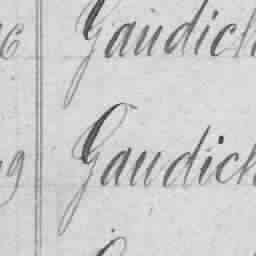 6 Gaudich
9 Gaudich